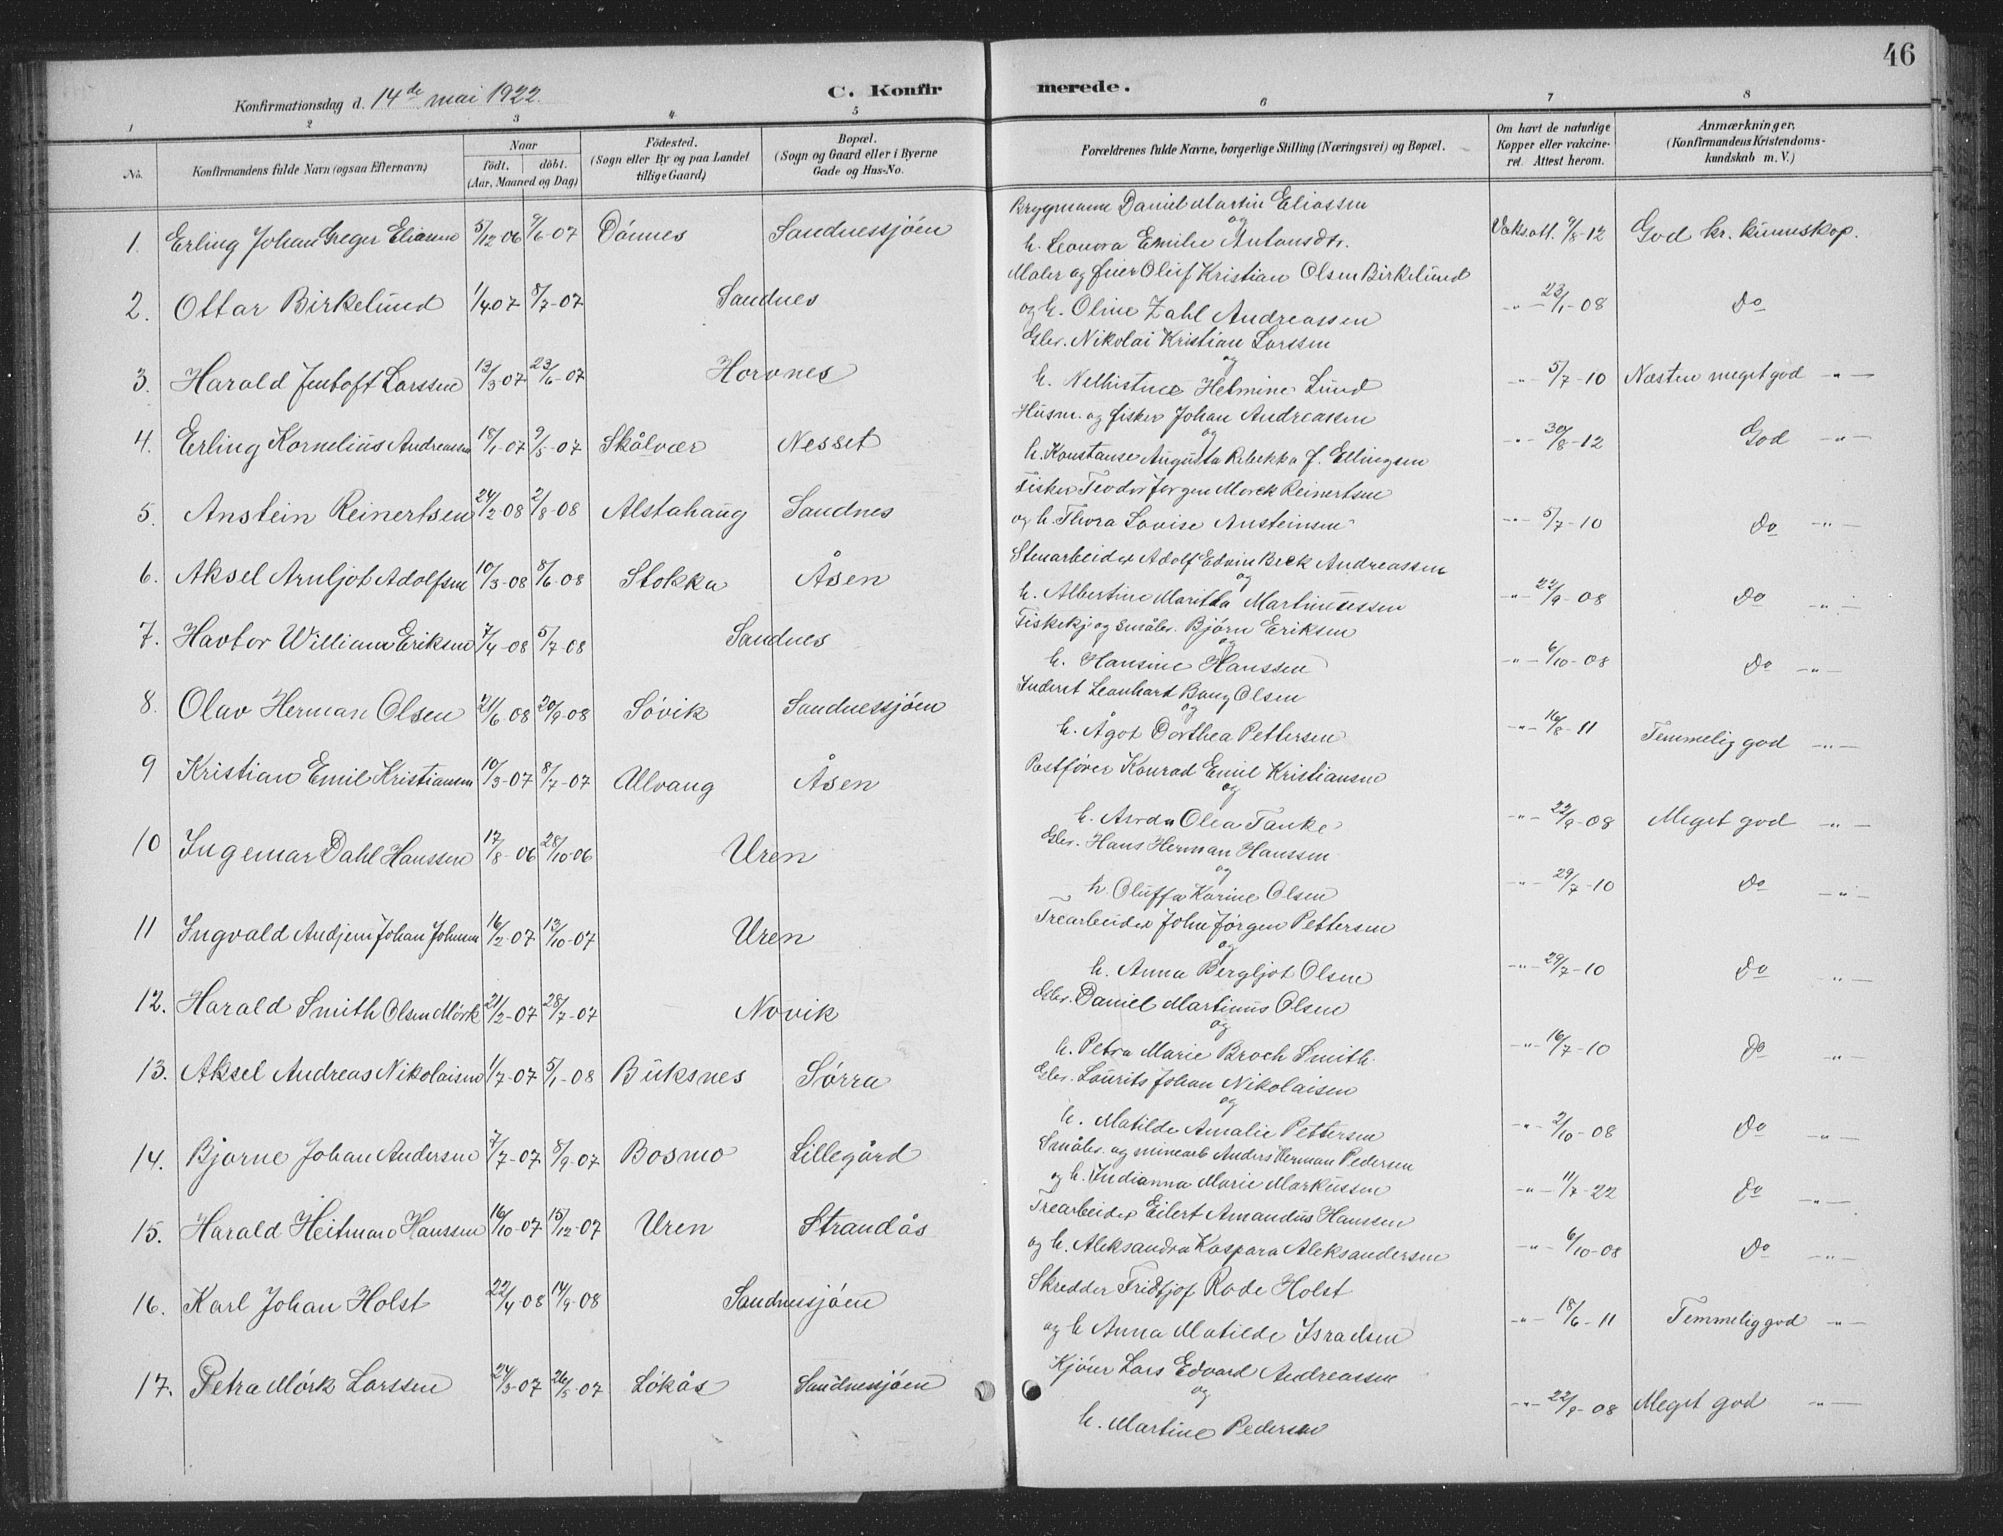 46
Konfirmationsdag d. 14de mai 1922.
C. Konfirmerede.
1 2 3 4 5 6 7 8
No.
Konfirmandens fulde Navn (ogsaa Efternavn)
Naar
födt. döbt.
(Aar, Maaned og Dag)
Födested.
(Sogn eller By og paa Landet
tillige Gaard)
Bopæl.
(Sogn og Gaard eller i Byerne
Gade og Hus-No.
Forældrenes fulde Navne, borgerlige Stilling (Næringsvei) og Bopæl.
Om havt de naturlige
Kopper eller vakcine-
ret. Attest herom.
Anmærkninger,
(Konfirmandens Kristendoms-
kundskab m. V.)
1. Erling Johan Greger Eliassen 5/12-06 9/6-07 Dönnes Sandnessjöen
Brygmann Daniel Martin Eliassen
og
h. Leonora Emilie Antonsdtr.
Vaks.att. 9/8-12 God kr. kunnskap.
2. Ottar Birkelund 1/4 07 8/7-07 Sandnes
Maler og feier Oluf Kristian Olsen Birkelund
og h. Oline Zahl Andreassen
-"- 23/1-08 Do
3. Harald Jentoft Larssen 13/3-07 23/6-07 Horvnes
Gbr. Nikolai Kristian Larssen
og
h. Nelhistine Helmine Lund
-"- 5/7-10 Næsten meget god -"-
4. Erling Kornelius Andreassen 18/1-07 9/5-07 Skålvær Nesset
Husm. og fisker Johan Andreassen
og
h. Konstanse Augusta Rebekka f. Ellingsen
-"- 30/8-12 God -"-
5. Anstein Reinertsen 24/2-08 2/8-08 Alstahaug Sandnes
Fisker Teodor Jørgen Morck Reinertsen
og h. Thora Lovise Ansteinsen
-"- 5/7-10 Do -"-
6. Aksel Arnljot Adolfsen 10/3-08 8/6-08 Stokka Åsen
Stenarbeider Adolf Edvin Beck Andreassen
og
h. Albertine Maritta Martinussen
-"- 22/9-08 Do -"-
7. Havtor William Eriksen 7/4-08 5/7-08 Sandnes
Fiskekj. og småbr. Bjørn Eriksen
og
h. Hansine Hanssen
-"- 6/10-08 Do -"-
8. Olav Herman Olsen 21/6-08 20/9-08 Søvik Sandnessjøen
Inderst Leonhart Bang Olsen
og
h. Ågot Dorthea Pettersen
-"- 16/8-11 Temmelig god -"-
9 Kristian Emil Kristiansen 10/3-07 8/7-07 Alvang Åsen
Postfører Konrad Emil Kristiansen
og
h. Arvda Olea Tanke
-"- 22/9-08 Meget god -"-
10 Ingemar Dahl Hanssen 17/8-06 28/10-06 Uren
Gbr. Hans Herman Hanssen
og
h. Oluffa Karine Olsen
-"- 29/7-10 Do -"-
11 Ingvald Andjem Johan Johnsen 16/2-07 13/10-07 Uren
Trearbeider John Jørgen Pettersen
og
h. Anna Bergljot Olsen
-"- 29/7-10 Do -"-
12. Harald Smith Olsen Mörk 21/2-07 28/7-07 Novik
Gbr. Daniel Martinus Olsen
og
h. Petra Marie Broch Smith.
-"- 16/7-10 Do -"-
13. Aksel Andreas Nikolaisen 1/7-07 5/1-08 Buksnes Sørra
Gbr. Laurits Johan Nikolaisen
og
h. Matilde Amalie Pettersen
-"- 2/10-08 Do -"-
14. Bjarne Johan Andersen 7/7-07 8/9-07 Bosmo Lillegård
Småbr. og minearb Anders Herman Pedersen
og h. Indianna Marie Markussen
-"- 11/7-22 Do -"-
15. Harald Heitman Hanssen 16/10-07 15/12-07 Uren Strandås
Trearbeider Eilert Amandus Hanssen
og h. Aleksandra Kaspara Aleksandersen
-"- 6/10-08 Do -"-
16. Karl Johan Holst 22/4-08 14/9-08 Sandnessjöen
Skredder Fridtjof Rode Holst
og h Anna Matilde Israelsen
-"- 18/6-11 Temmelig god -"-
17. Petra Mörk Larssen 24/3-07 26/5-07 Lökås Sandnessjöen
Kjöner Lars Edvard Andreassen
og
h. Martine Pedersen
-"- 22/9-08 Meget god -"-